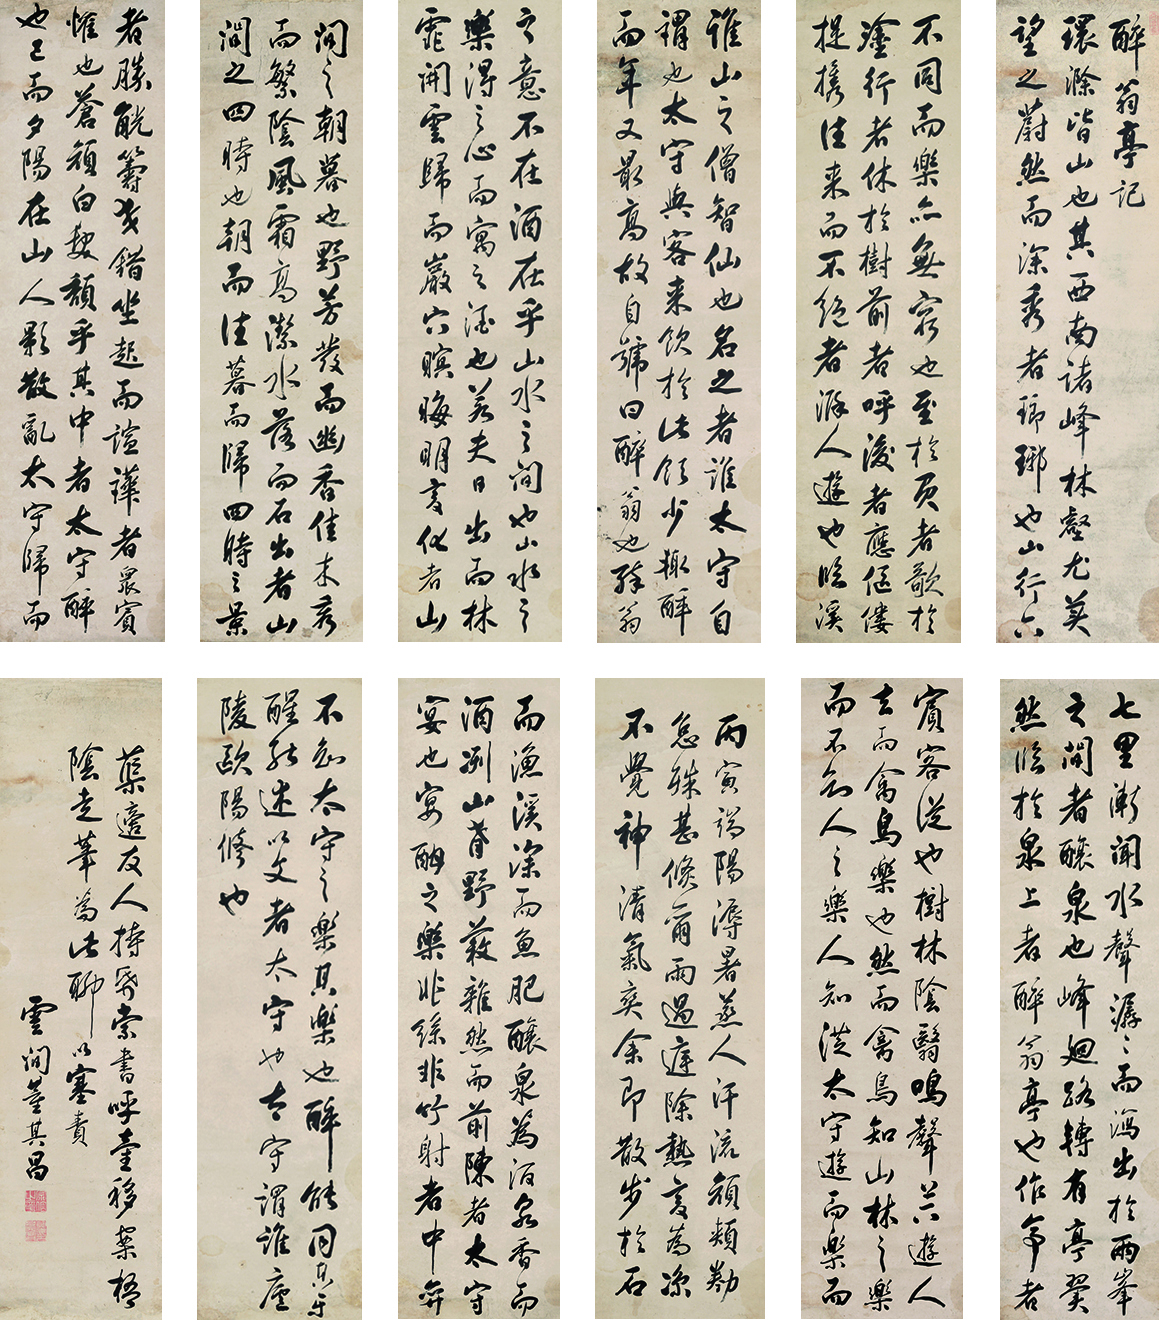 醉翁亭記
環滁皆山也其西南諸峰林壑尤美
望之蔚然而深秀者瑯琊也山行六
七里漸聞水聲潺〻而瀉出於兩峯
之間者釀泉也峰迴路轉有亭翼
然臨於泉上者醉翁亭也作亭者
誰山之僧智仙也名之者誰太守自
謂也太守與客來飲於此飲少輒醉
而年又最高故自號曰醉翁也醉翁
之意不在酒在乎山水之間也山水之
樂得之心而寓之酒也若夫日出而林
霏開雲歸而巖穴暝晦明變化者山
間之朝暮也野芳發而幽香佳木秀
而繁陰風霜高潔水落而石出者山
間之四時也朝而往暮而歸四時之景
不同而樂亦無窮也至於負者歌於
塗行者休於樹前者呼後者應傴僂
提攜往來而不絕者滁人遊也臨溪
而漁溪深而魚肥釀泉為酒泉香而
酒冽山肴野蔌雜然而前陳者太守
宴也宴酣之樂非絲非竹射者中弈
者勝觥籌交錯坐起而諠譁者眾賓
懽也蒼顏白髮頹乎其中者太守醉
也已而夕陽在山人影散亂太守歸而
賓客從也樹林陰翳鳴聲上下遊人
去而禽鳥樂也然而禽鳥知山林之樂
而不知人之樂人知從太守遊而樂而
不知太守之樂其樂也醉能同其樂
醒能述以文者太守也太守謂誰廬
陵歐陽修也
丙寅端陽溽暑蒸人汗流顏頰
怠殊甚倏爾雨過庭除熱變為涼
不覺神清氣爽余即散步於石
蕖適友人持帋索書呼童移案梧
陰走筆為此聊以塞責
雲間董其昌